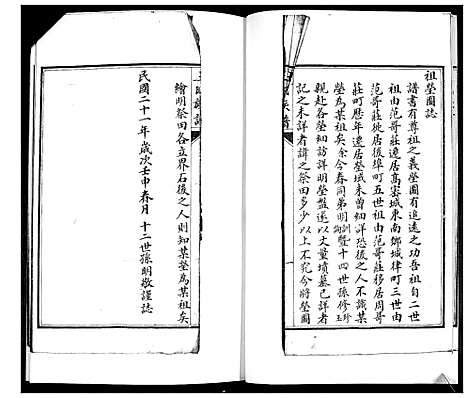 祖塋圖誌
譜書有尊祖之義塋圖有追遠之功吾祖自二世
祖由范哥莊遷居高密城東南鄉城律町三世由
范哥莊徙居後律町五世祖由范哥莊移居周哥
莊町歷年遷居塋域未曾細詳恐後之人不識某
塋為某祖矣余今春同弟明訓暨十四世孫修珍玉
親赴各塋細訪詳明塋盤遂以丈量墳墓已詳者
記之未詳者諱之祭田多少以上不究今將塋圖
繪明祭田各立界石後之人則知某塋為某祖矣
民國二十一年歲次壬申春月 十二世孫明敬謹誌